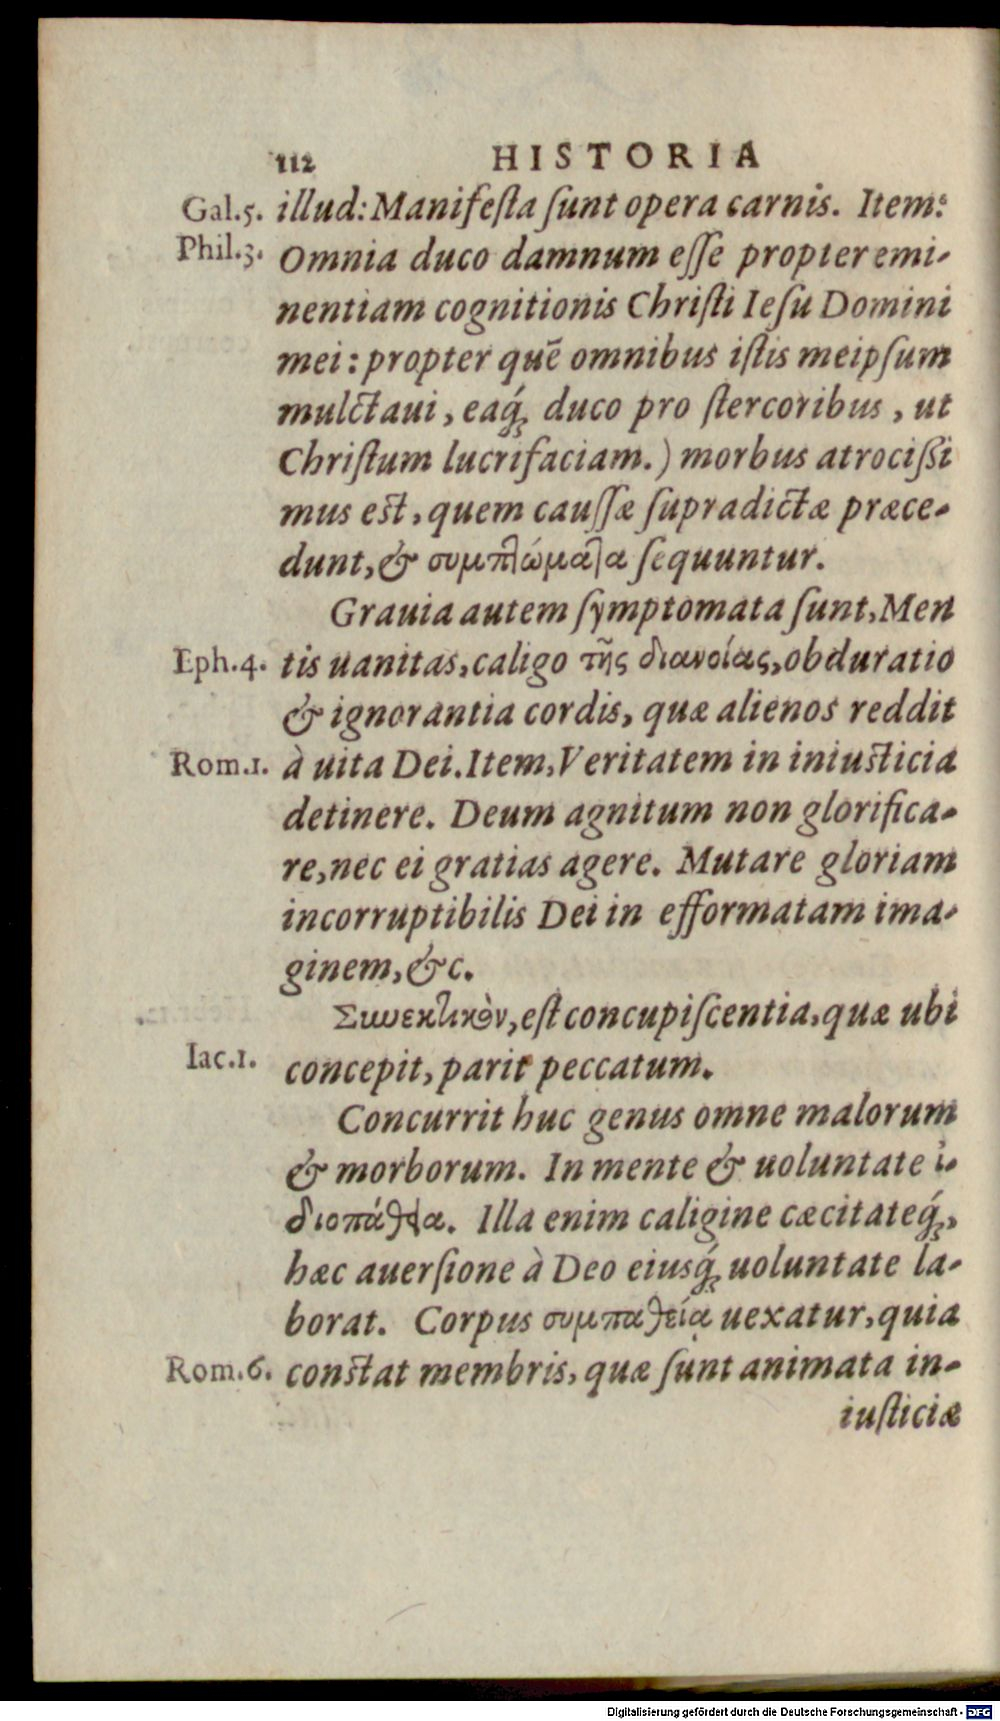 112 HISTORIA
Gal.5. illud: Manifeſta ſunt opera carnis. Item:
Phil.3. Omnia duco damnum eſſe propter emi-
nentiam cognitionis Chriſti Ieſu Domini
mei: propter quē omnibus iſtis meipſum
mulctaui, eaq́ꝫ duco pro ſtercoribus, ut
Chriſtum lucrifaciam.) morbus atrociſſi
mus est, quem cauſſæ ſupradictæ præce-
dunt, & συμπτώματα ſequuntur.
Grauia autem ſymptomata ſunt, Men
Eph.4. tis uanitas, caligo τῆς διανοίας, obduratio
& ignorantia cordis, quæ alienos reddit
Rom.1. à uita Dei. Item, Veritatem in iniusticia
detinere. Deum agnitum non glorifica-
re, nec ei gratias agere. Mutare gloriam
incorruptibilis Dei in efformatam ima-
ginem, &c.
Συνεκτικὸν, eſt concupiſcentia, quæ ubi
Iac.1. concepit, parit peccatum.
Concurrit huc genus omne malorum
& morborum. In mente & uoluntate ἰ-
διοπάθεια. Illa enim caligine cæcitateq́ꝫ,
hæc auerſione à Deo eiusq́ꝫ uoluntate la-
borat. Corpus συμπαθείᾳ uexatur, quia
Rom.6. constat membris, quæ ſunt animata in-
iuſticiæ
Digitalisierung gefördert durch die Deutsche Forschungsgemeinschaft - DFG